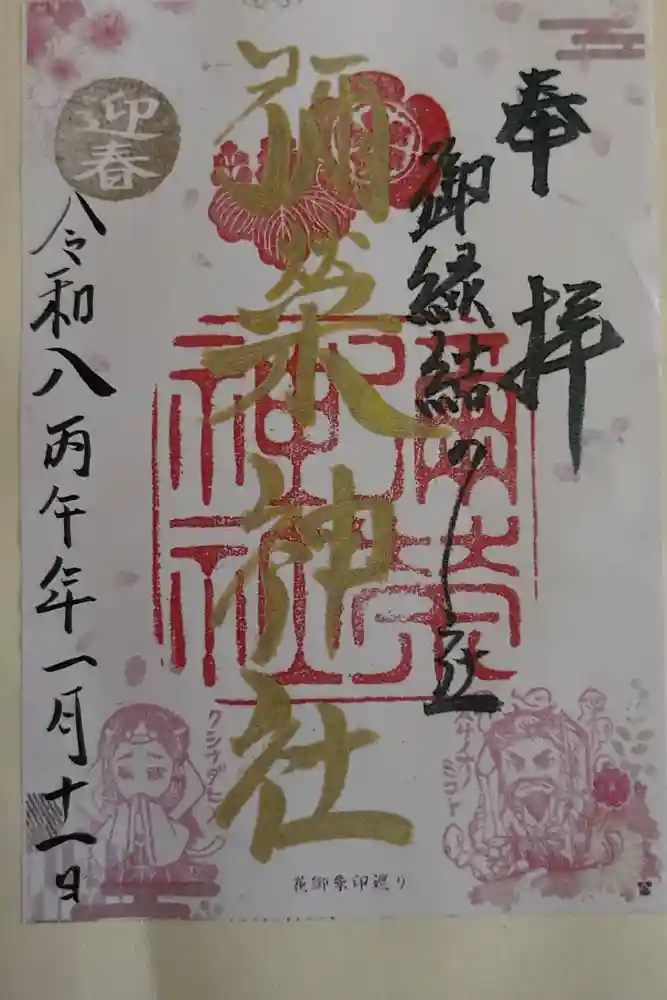 奉拝
御縁結の社
彌榮神社
迎春
令和八丙午年一月十一日
彌榮神社
クシナダヒメ
スサノオノミコト
花御朱印巡り